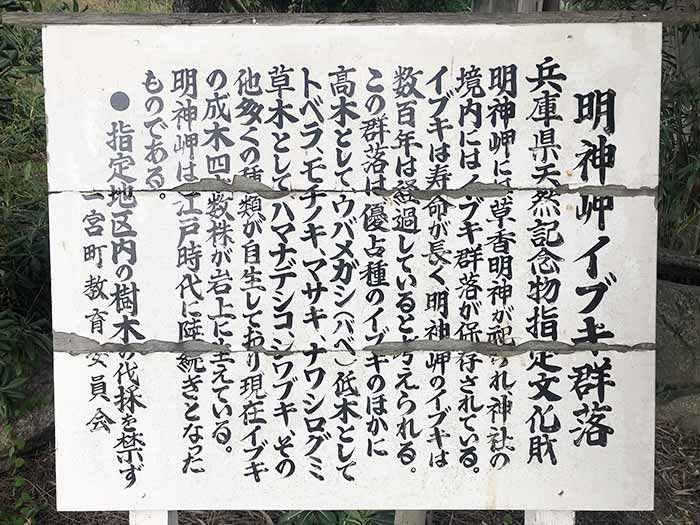 明神岬イブキ群落
兵庫県天然記念物指定文化財
明神岬には草香明神が祀られ神社の
境内にはイブキ群落が保存されている。
イブキは寿命が長く明神岬のイブキは
数百年は経過していると考えられる。
この群落は優占種のイブキのほかに
高木としてウバメガシ(バベ)低木として
トベラ、モチノキ、マサキ、ナワシログミ
草木としてハマナデシコ、ツワブキ、その
他多くの種類が自生しており現在イブキ
の成木四十数株が岩上に生えている。
明神岬は江戸時代に陸続きとなった
ものである。
●指定地区内の樹木の伐採を禁ず
一宮町教育委員会